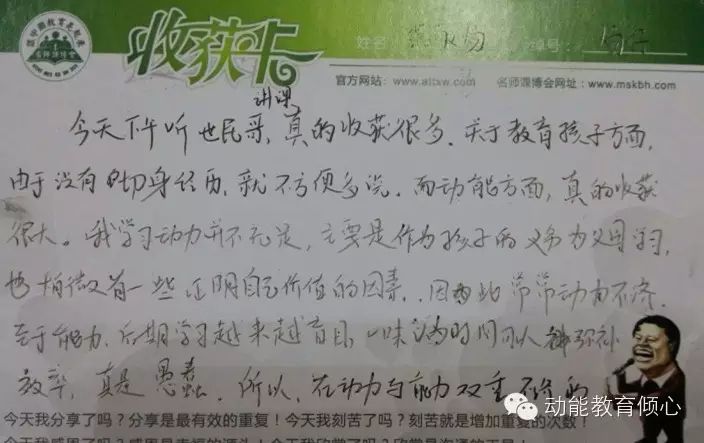 收获卡
姓名
官方网站：www.altxw.com 名师课博会网址：www.mskbh.com
讲课
今天下午听世民哥，真的收获很多．关于教育孩子方面，
由于没有切身经历，就不方便多说．而动能方面，真的收获
很大。我学习动力并不充足，主要是作为孩子的义务为父母学习，
也稍微有一些证明自己价值的因素．因此常常动力不济．
至于能力，后期学习越来越盲目，一味的时间可以弥补
效率，真是愚蠢．所以，在动力与能力双重不济的
今天我分享了吗？分享是最有效的重复！今天我刻苦了吗？刻苦就是增加重复的次数！
动能教育倾心